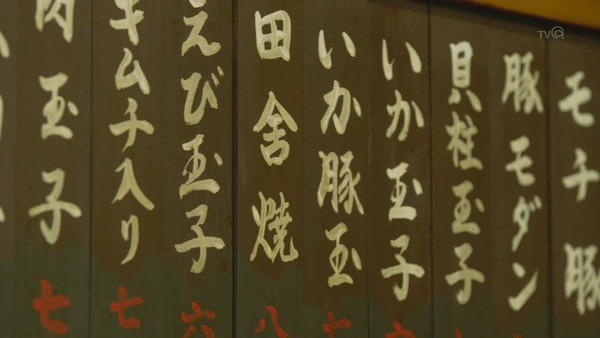 モチ豚
豚モダン
貝柱玉子
いか玉子 六
いか豚玉 七
田舎焼 八
えび玉子 六
キムチ入り 七
肉玉子 七
TVQ